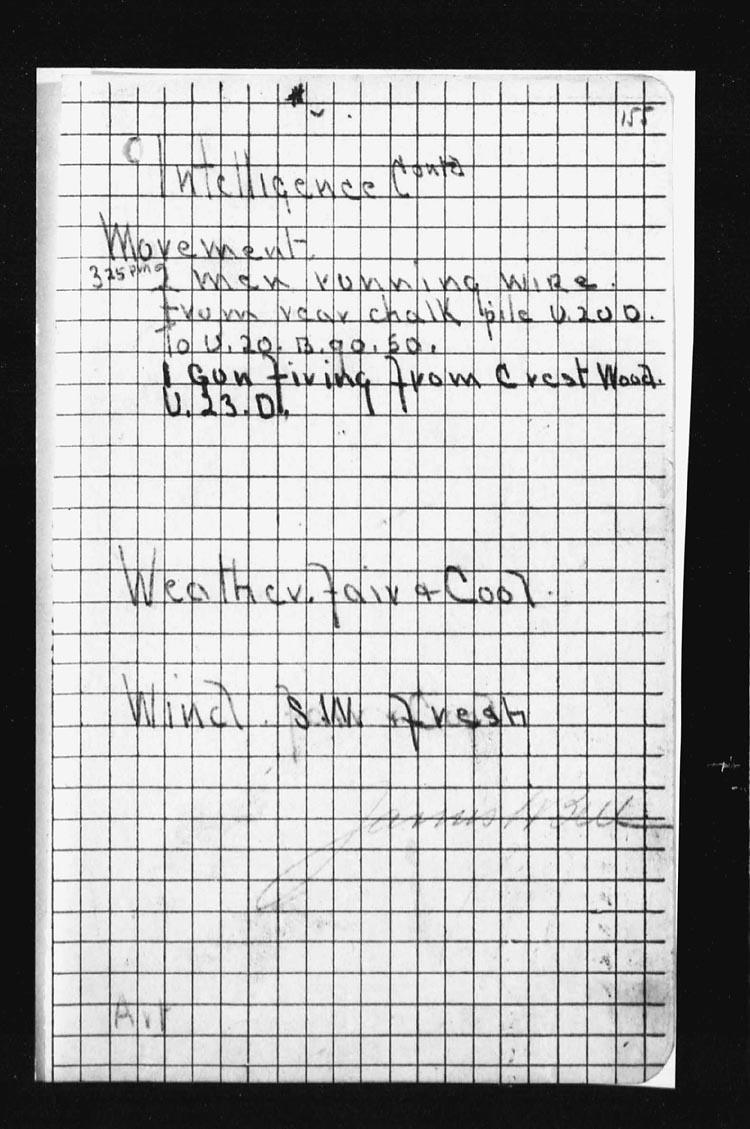 155
Intelligence Contd
Movement.
3 25 pm 2 men running wire.
from rear chalk pile U.20 D.
To U.20.B.90.50.
1 Gun firing from Crest Wood.
U.23.D.
Weather. fair & Cool.
Wind. S.W. fresh
James H Bell
Art